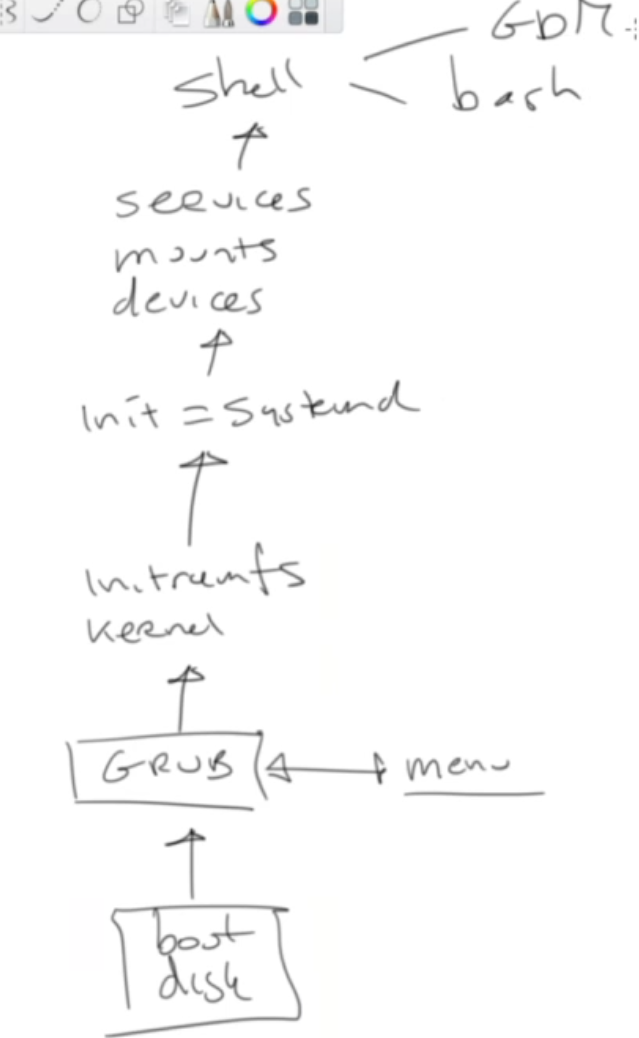 GDM
Shell
bash
seevices
mounts
devices
Init = Systemd
Initramfs
Kernel
GRUB
menu
boot
disk